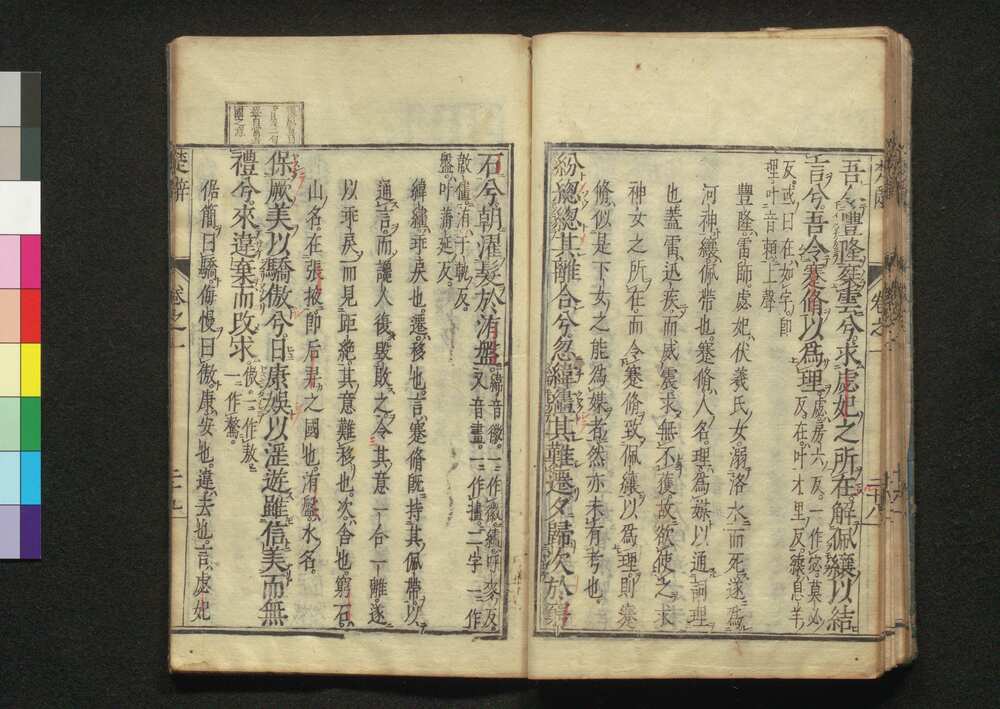 吾令豐隆椉雲兮求虙妃之所在解佩纕以結
言兮吾令蹇脩以爲理虙房六反一作宓莫必
反或曰在如字即
理叶音賴上聲
反在叶才里反纕息羊
豐隆雷師虙妃伏羲氏女溺洛水而死遂爲
河神纕佩帶也蹇脩人名理爲媒以通詞理
也蓋雷迅疾而威震求無不獲故欲使之求
神女之所在而令蹇脩致佩纕以爲理則蹇
脩似是下女之能爲媒者然亦未有考也
紛總總其離合兮忽緯繣其難遷夕歸次於窮
石兮朝濯髮於洧盤緯音徽一作徽繣呼麥反
又音畫一作㩇二字一作
敿儘洧于軌反
盤叶蒲延反
緯繣乖戾也遷移也言蹇脩既持其佩帶以
通言而讒人復毀敗之令其意一合一離遂
以乖戾而見距絶其意難移也次舍也窮石
山名在張掖即后羿之國也洧盤水名
保厥美以驕傲兮日康娛以淫遊雖信美而無
禮兮來違棄而改求傲一作敖
一作驁
倨簡曰驕侮慢曰傲康安也違去也言虙妃
楚辭
卷之一
二十九
卷之一
二十八